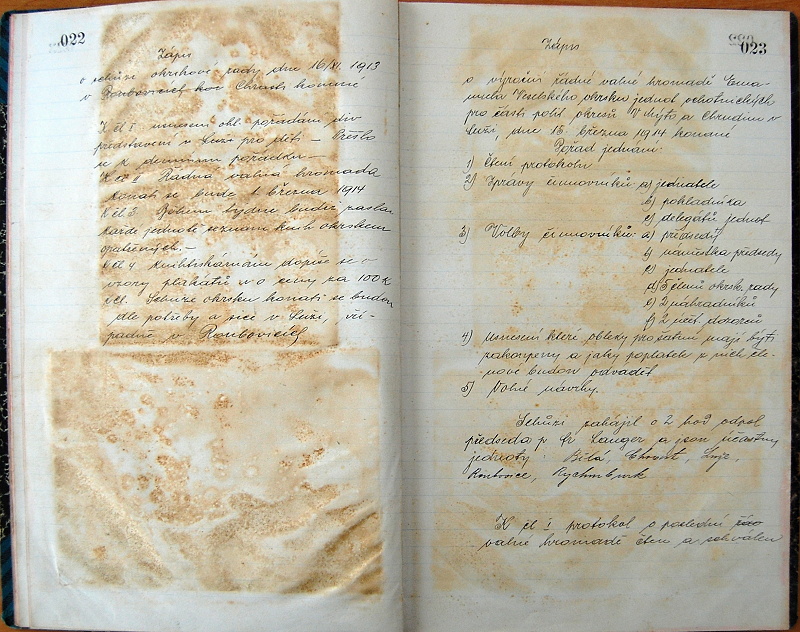 022
Zápis
o schůzi okrskové rady dne 16/XI. 1913
v Roubovicích konané
K čl I. usnesení ohl. pořádání div
představení v Luži pro děti — Přešlo
se k dennímu pořádku —
K čl II Řádná valná hromada
konati se bude 1 března 1914
K čl 3. Během týdne budiž zaslán
každé jednotě seznam knih okrskem
opatřených. —
K čl 4 knihtiskárnám dopíše se o
vzory plakátů a o ceny za 100 K
čl. Schůze okrsku konati se budou
dle potřeby a sice v Luži, pří-
padně v Roubovicích
023
Zápis
o výroční řádné valné hromadě
Veselského okrsku jednot ochotnických
pro části polit. okresů V. Mýto a Chrudim v
Luži, dne 15. března 1914 konané
Pořad jednání:
1) Čtení protokolu
2) Zprávy činovníků: a) jednatele
b) pokladníka
c) delegátů jednot
3) Volby činovníků: a) předsedy
b) náměstka předsedy
c) jednatele
d) 5 členů okrsk. rady
e) 2 náhradníků
f) 2 účt. dozorců
4) Usnesení které obleky pro šatní mají býti
zakoupeny a jaký poplatek z nich čle-
nové budou odváděti
5) Volné návrhy.
Schůzi zahájil o 2 hod odpol
předseda p. Langer a jsou účastny
jednoty: Bílá, Chroust, Luže,
Roubovice, Rychmburk
K čl I protokol o poslední
valné hromadě čten a schválen